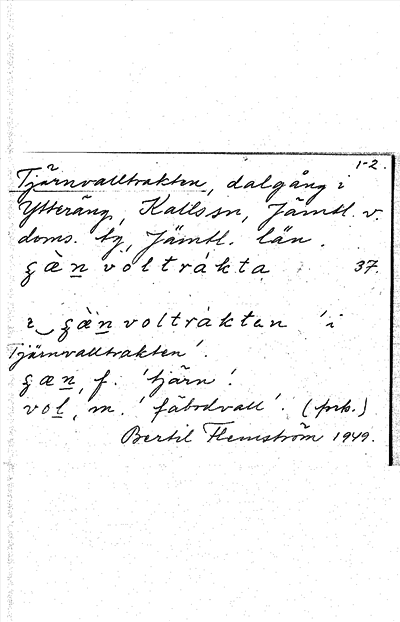 1-2.
Tjärnvalltrakten, dalgång i
Ytteräng, Kalls sn, Jämtl. v.
doms. tg, Jämtl. län.
gæ̀n voltràkta 37.
i gæ̀n voltràkten 'i
Tjärnvalltrakten'.
gæn, f. 'tjärn'.
vol, m. 'fäbodvall'. (prb.)
Bertil Flemström 1949.